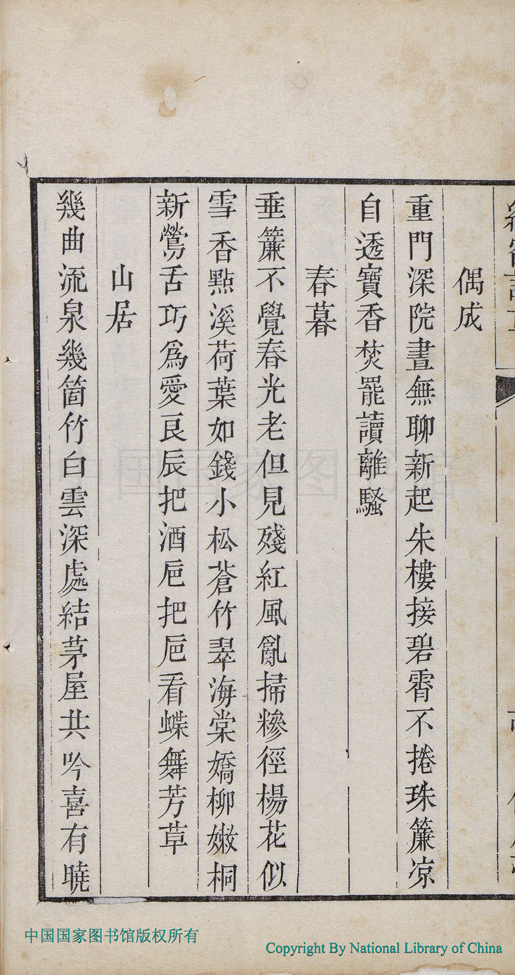 偶成
重門深院晝無聊新起朱樓接碧霄不捲珠簾凉
自透寶香焚罷讀離騷
春暮
垂簾不覺春光老但見殘紅風亂掃糝徑楊花似
雪香點溪荷葉如錢小松蒼竹翠海棠嬌柳嫩桐
新鶯舌巧爲愛良辰把酒巵把巵看蝶舞芳草
山居
幾曲流泉幾箇竹白雲深處結茅屋共吟喜有曉
中国国家图书馆版权所有
Copyright By National Library of China